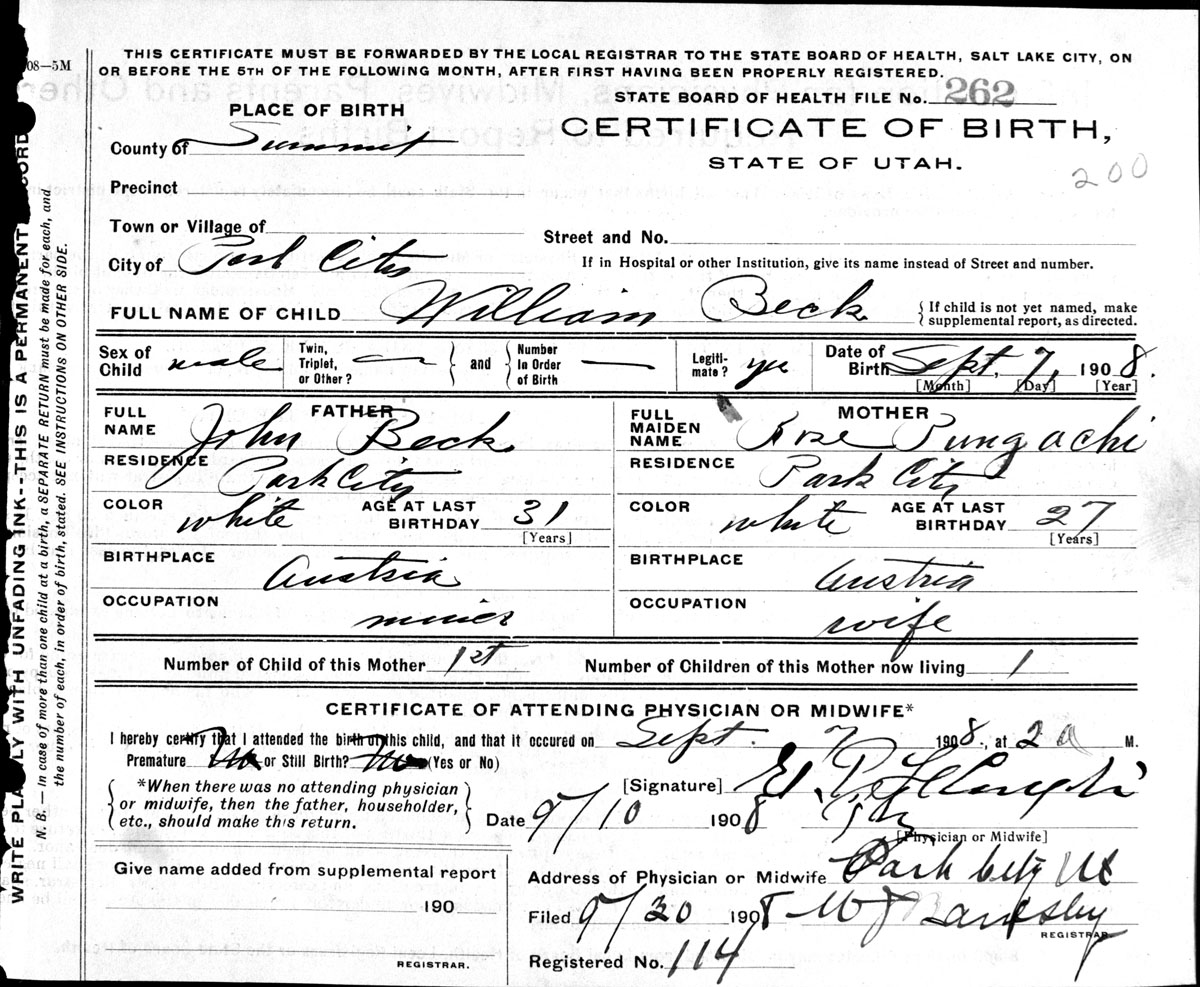 08—5M
THIS CERTIFICATE MUST BE FORWARDED BY THE LOCAL REGISTRAR TO THE STATE BOARD OF HEALTH, SALT LAKE CITY, ON
OR BEFORE THE 5TH OF THE FOLLOWING MONTH, AFTER FIRST HAVING BEEN PROPERLY REGISTERED.
STATE BOARD OF HEALTH FILE No. 262
PLACE OF BIRTH
CERTIFICATE OF BIRTH,
STATE OF UTAH.
200
County of Summit
Precinct
Town or Village of
Street and No.
City of Park City
If in Hospital or other Institution, give its name instead of Street and number.
FULL NAME OF CHILD William Beck
{ If child is not yet named, make
supplemental report, as directed.
Sex of Child male
Twin, Triplet, or Other? —
and
Number In Order of Birth —
Legiti-mate? yes
Date of Birth Sept, 7, 1908.
[Month] [Day] [Year]
FATHER
FULL NAME John Beck
RESIDENCE Park City
COLOR white
AGE AT LAST BIRTHDAY 31
[Years]
BIRTHPLACE Austria
OCCUPATION miner
MOTHER
FULL MAIDEN NAME Rose Pungachi
RESIDENCE Park City
COLOR white
AGE AT LAST BIRTHDAY 27
[Years]
BIRTHPLACE Austria
OCCUPATION wife
Number of Child of this Mother 1st
Number of Children of this Mother now living 1
CERTIFICATE OF ATTENDING PHYSICIAN OR MIDWIFE*
I hereby certify that I attended the birth of this child, and that it occured on Sept. 7 1908., at 2 a M.
Premature No or Still Birth? No (Yes or No)
{ *When there was no attending physician
or midwife, then the father, householder,
etc., should make this return. }
[Signature]
Date 9/10 1908
[Physician or Midwife]
Address of Physician or Midwife Park City Ut
Give name added from supplemental report
190
REGISTRAR.
Filed 9/30 1908
REGISTRAR
Registered No. 114
WRITE PLAINLY WITH UNFADING INK--THIS IS A PERMANENT RECORD
N. B.—In case of more than one child at a birth, a SEPARATE RETURN must be made for each, and
the number of each, in order of birth, stated. SEE INSTRUCTIONS ON OTHER SIDE.